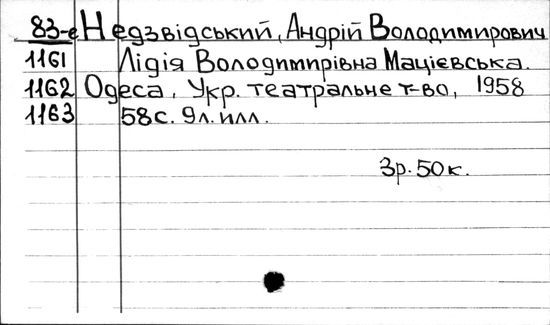 83-е Недзвідський, Андрій Володимирович
1161 Лідія Володимирівна Мацієвська.
1162 Одеса, Укр. театральне т-во, 1958
1163 58с. 9л. илл.
3р. 50к.